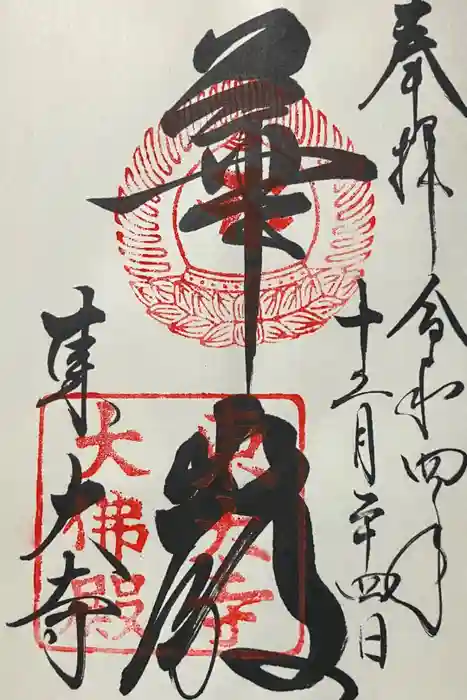 奉拝 令和四年
十二月廿四日
華嚴
東大寺
東大寺
大佛殿